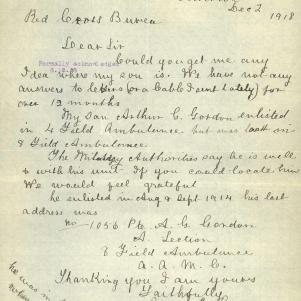 Dec 2 1918
Red Cross Bureau
Dear Sir
Could you get me any
Formally acknowledged
Idea where my son is. We have not any
answers to letters (or a Cable I sent lately) for
over 12 months
My Son Arthur C. Gordon enlisted
in 4 Field Ambulance but was last on
8 Field Ambulance.
The Military Authorities say he is well
& with his unit. If you could locate him
We would feel grateful
he enlisted in Aug & Sept 1914 his last
address was
No 1056 Pte A. G. Gordon
A. Section
8 Field Ambulance
A. A. M. C.
Thanking you I am yours
Faithfully
he was in